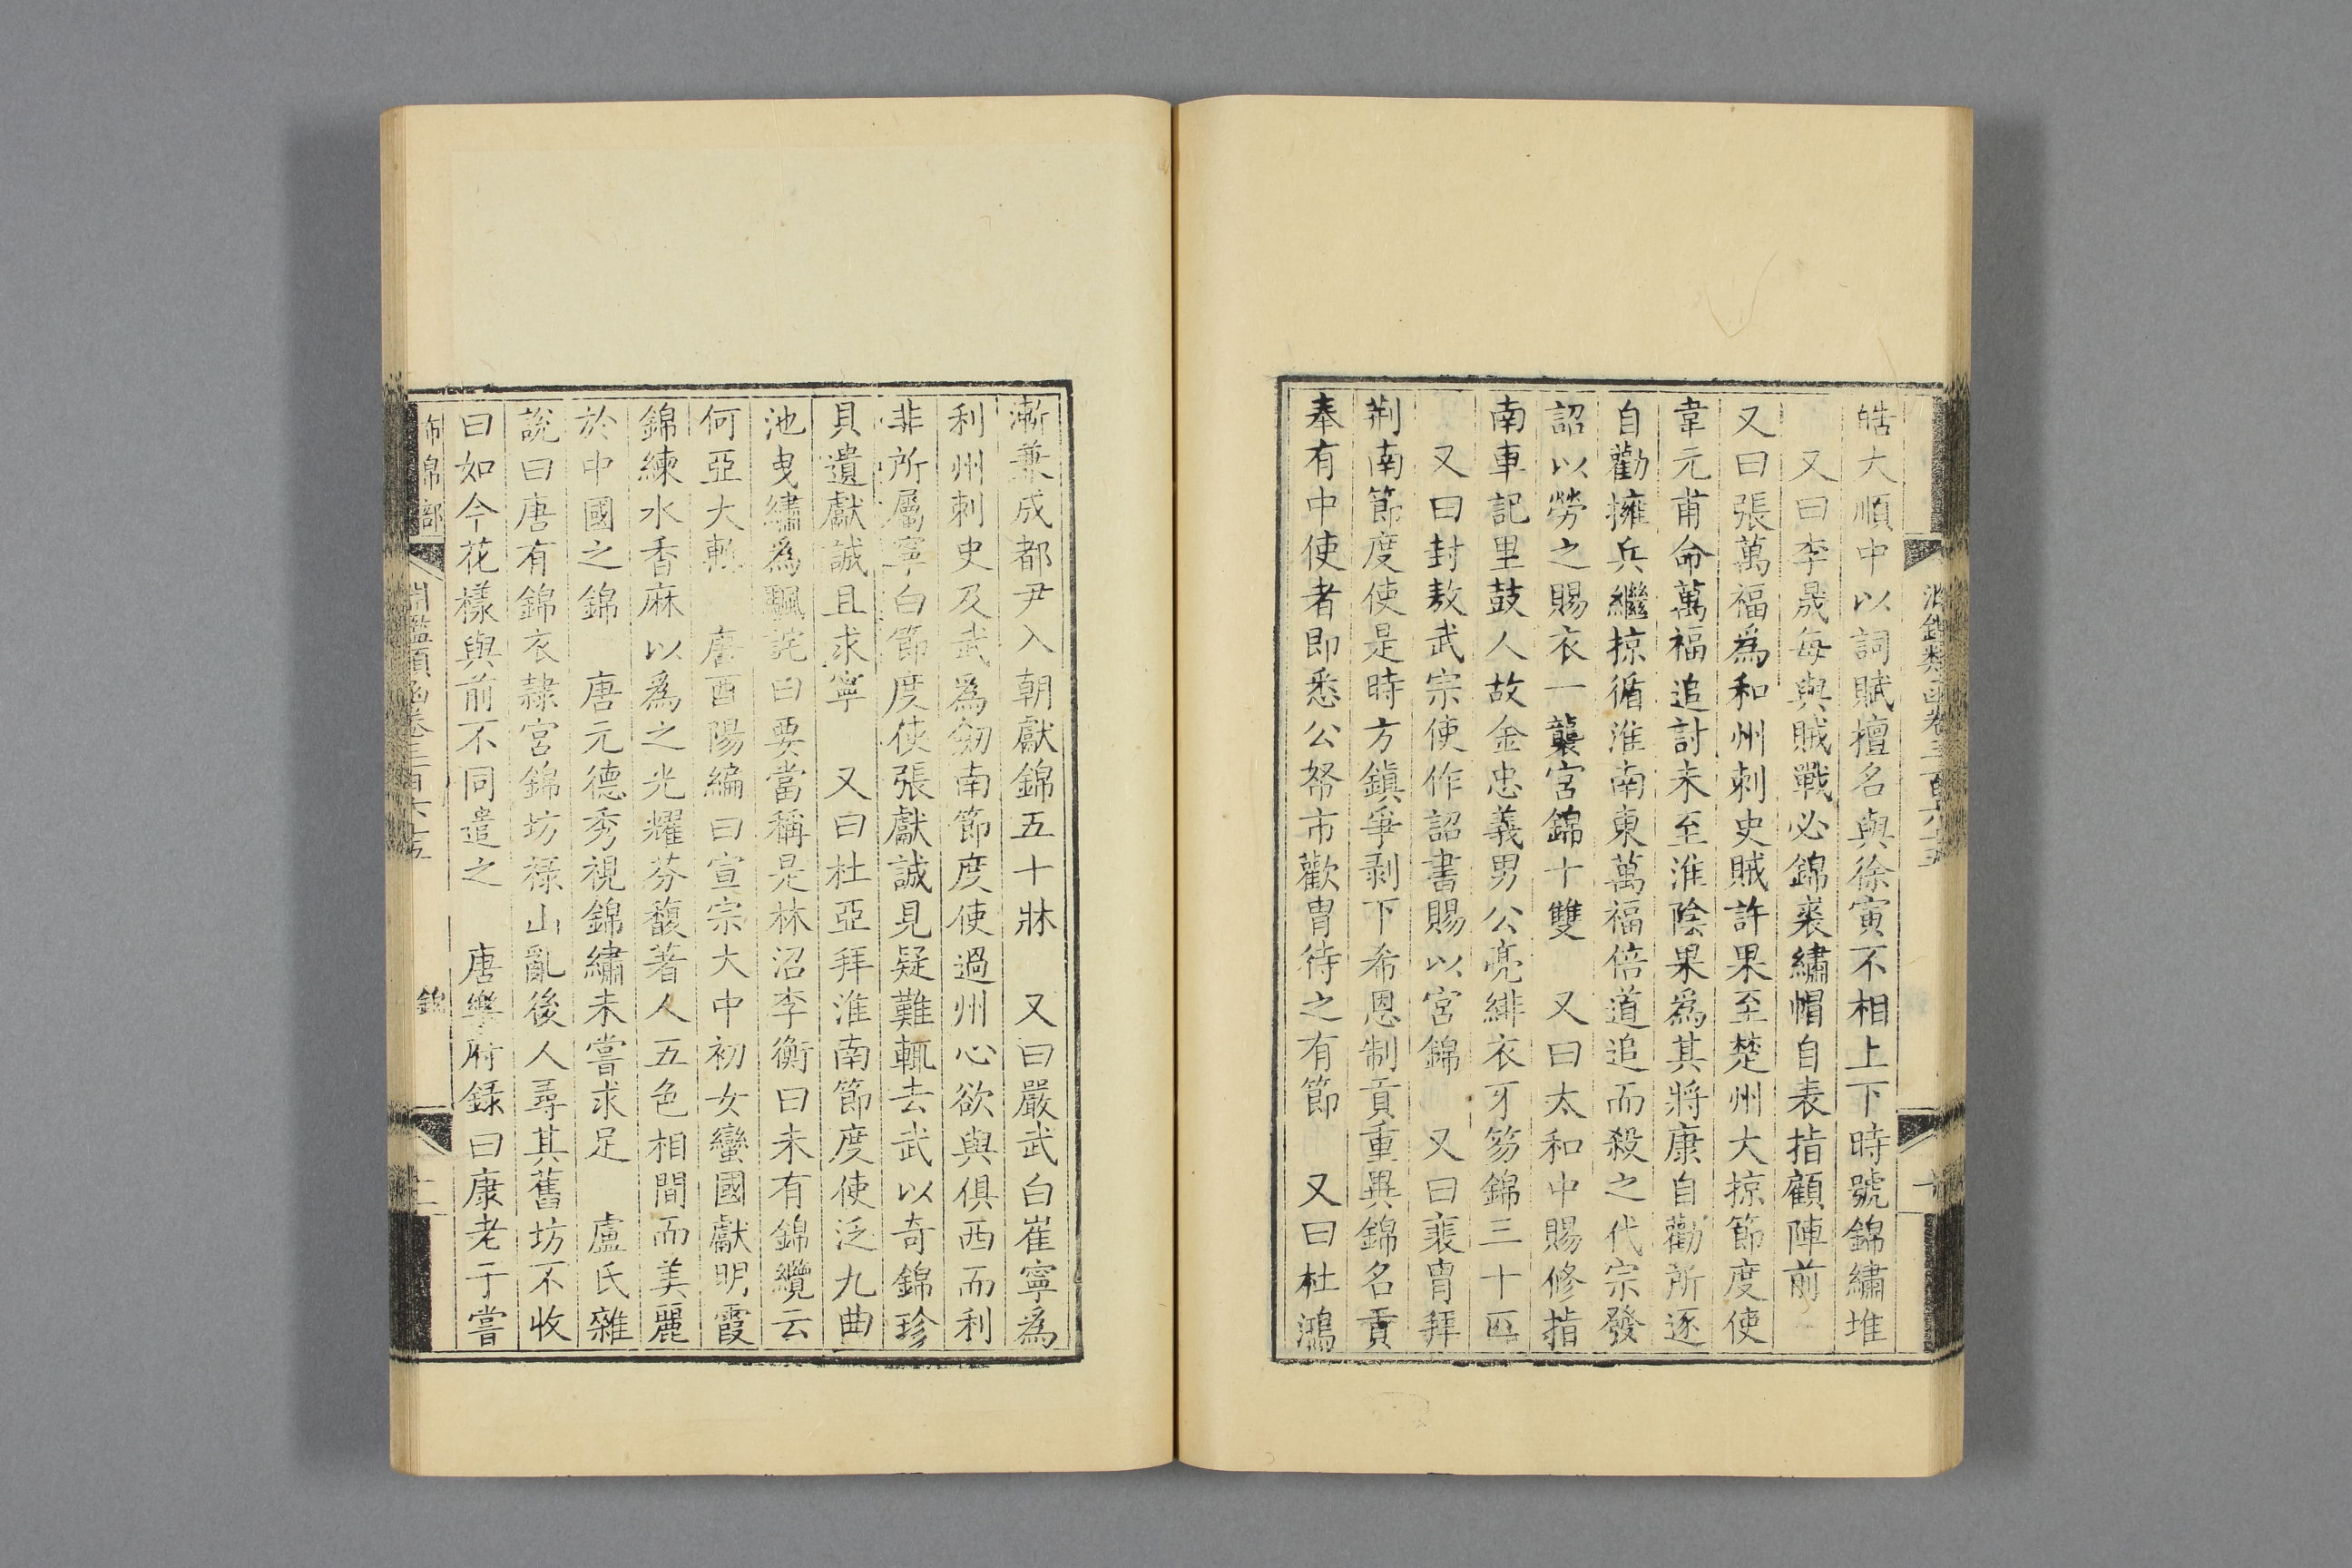 皓大順中以詞賦擅名與徐寅不相上下時號錦繡堆
又曰李晟每與賊戰必錦裘繡帽自表指顧陣前
又曰張萬福爲和州刺史賊許果至楚州大掠節度使
韋元甫命萬福追討未至淮陰果爲其將康自勸所逐
自勸擁兵繼掠循淮南東萬福倍道追而殺之代宗發
詔以勞之賜衣一襲宮錦十雙　又曰太和中賜修指
南車記里鼓人故金忠義男公亮緋衣牙笏錦三十匹
又曰封敖武宗使作詔書賜以宮錦　又曰裴胄拜
荆南節度使是時方鎮爭剥下希恩制貢重異錦名貢
奉有中使者即悉公帑市歡胄待之有節　又曰杜鴻
漸兼成都尹入朝獻錦五十牀　又曰嚴武白崔寧爲
利州刺史及武爲劒南節度使過州心欲與俱西而利
非所屬寧白節度使張獻誠見疑難輒去武以奇錦珍
貝遺獻誠且求寧　又曰杜亞拜淮南節度使泛九曲
池曳繡爲颿詫曰要當稱是林沼李衡曰未有錦纜云
何亞大慙　唐酉陽編曰宣宗大中初女蠻國獻明霞
錦練水香麻以爲之光耀芬馥著人五色相間而美麗
於中國之錦　唐元德秀視錦繡未嘗求足　盧氏雜
說曰唐有錦衣隸宮錦坊祿山亂後人尋其舊坊不收
曰如今花樣與前不同遣之　唐樂府錄曰康老子嘗
布帛部　淵鑑類函卷三百六十五　錦　十一